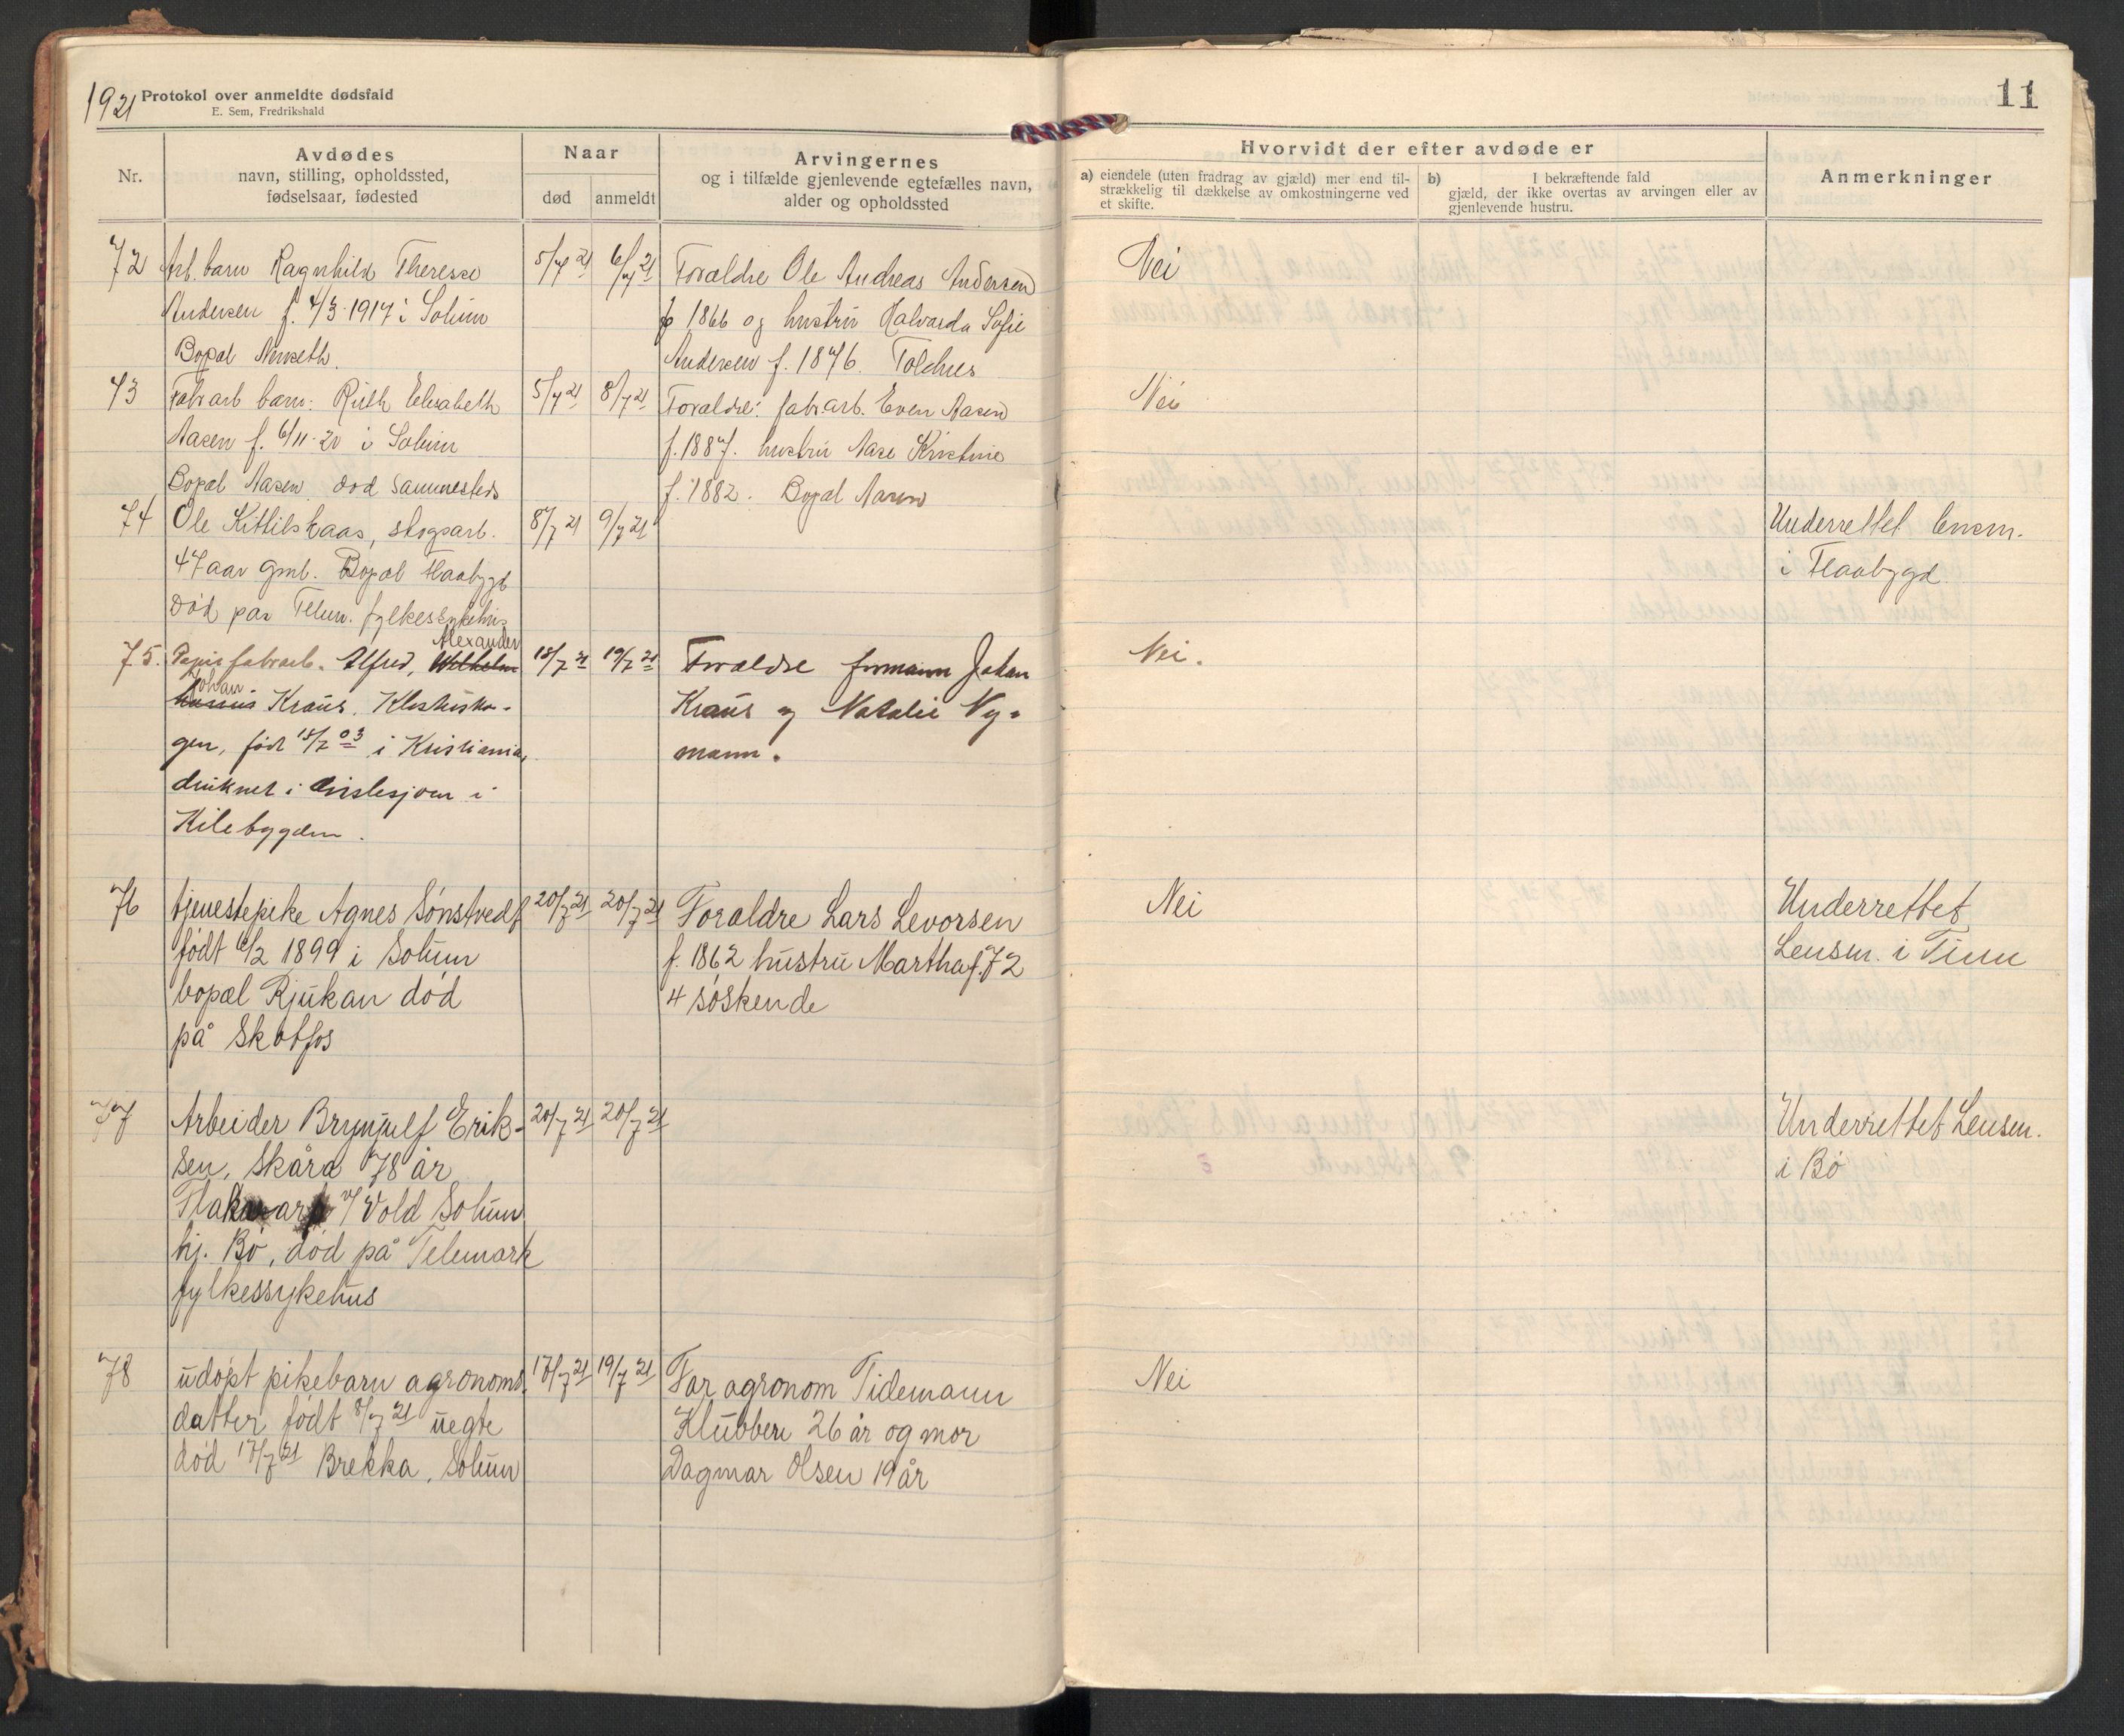 1921 Protokol over anmeldte dødsfald
E. Sem, Fredrikshald
11
Nr.
Avdødes
navn, stilling, opholdssted,
fødselsaar, fødested
Naar
død
anmeldt
Arvingernes
og i tilfælde gjenlevende egtefælles navn,
alder og opholdssted
Hvorvidt der efter avdøde er
a) eiendele (uten fradrag av gjæld) mer end til-
strækkelig til dækkelse av omkostningerne ved
et skifte.
b) I bekræftende fald
gjæld, der ikke overtas av arvingen eller av
gjenlevende hustru.
Anmerkninger
72
Arb. barn Ragnhild Therese
Andersen f. 4/3-1917 i Solum
Bopæl
5/7 21
6/7 21
Forældre Ole Andreas Andersen
f 1866 og hustru Halvarda Sofie
Andersen f. 1876. Toldnes
Nei
73
Fabr arb barn: Ruth Elisabeth
Aasen f. 6/11-20 i Solum
Bopæl Aasen død sammesteds
5/7 21
8/7 21
Forældre: fabr arb. Even Aasen
f. 1887. hustru Aase Kristine
f. 1882. Bopæl Aasen
Nei
74
Ole Kittilshaas, skogsarb.
47 aar gmb. Bopæl Flaabygd
Død paa Telem. fylkessykehus
8/7 21
9/7 21
Underrettet lensm.
i Flaabygd
75.
Papirfabrarb. Alfred, Wilhelm Alexander
Johan Kraus. Klostersko-
gen, født 18/7 03 i Kristiania,
druknet i i
Kilebygden.
18/7 21
19/7 21
Forældre formann Johan
Kraus og Natalie Ny-
mann.
Nei.
76
tjenestepike Agnes Sønstvedt
født 6/2 1899 i Solum
bopæl Rjukan død
på Skotfos
20/7 21
20/7 21
Foraldre Lars Levorsen
f. 1862 hustru Martha f. 72
4 søskende
Nei
Underrettet
Lensm. i Tinn
77
Arbeider Brynjulf Erik-
sen, Skåra 78 år
v/ Vold Solum
hj. Bø, død på Telemark
fylkessykehus
20/7 21
20/7 21
Underrettet Lensm.
i Bø
78
udøpt pikebarn agronoms-
datter født 8/7 21 uegte
død 17/7 21 Brekka, Solum
17/7 21
19/7 21
Far agronom Tidemann
Klubben 26 år og mor
Dagmar Olsen 19 år
Nei